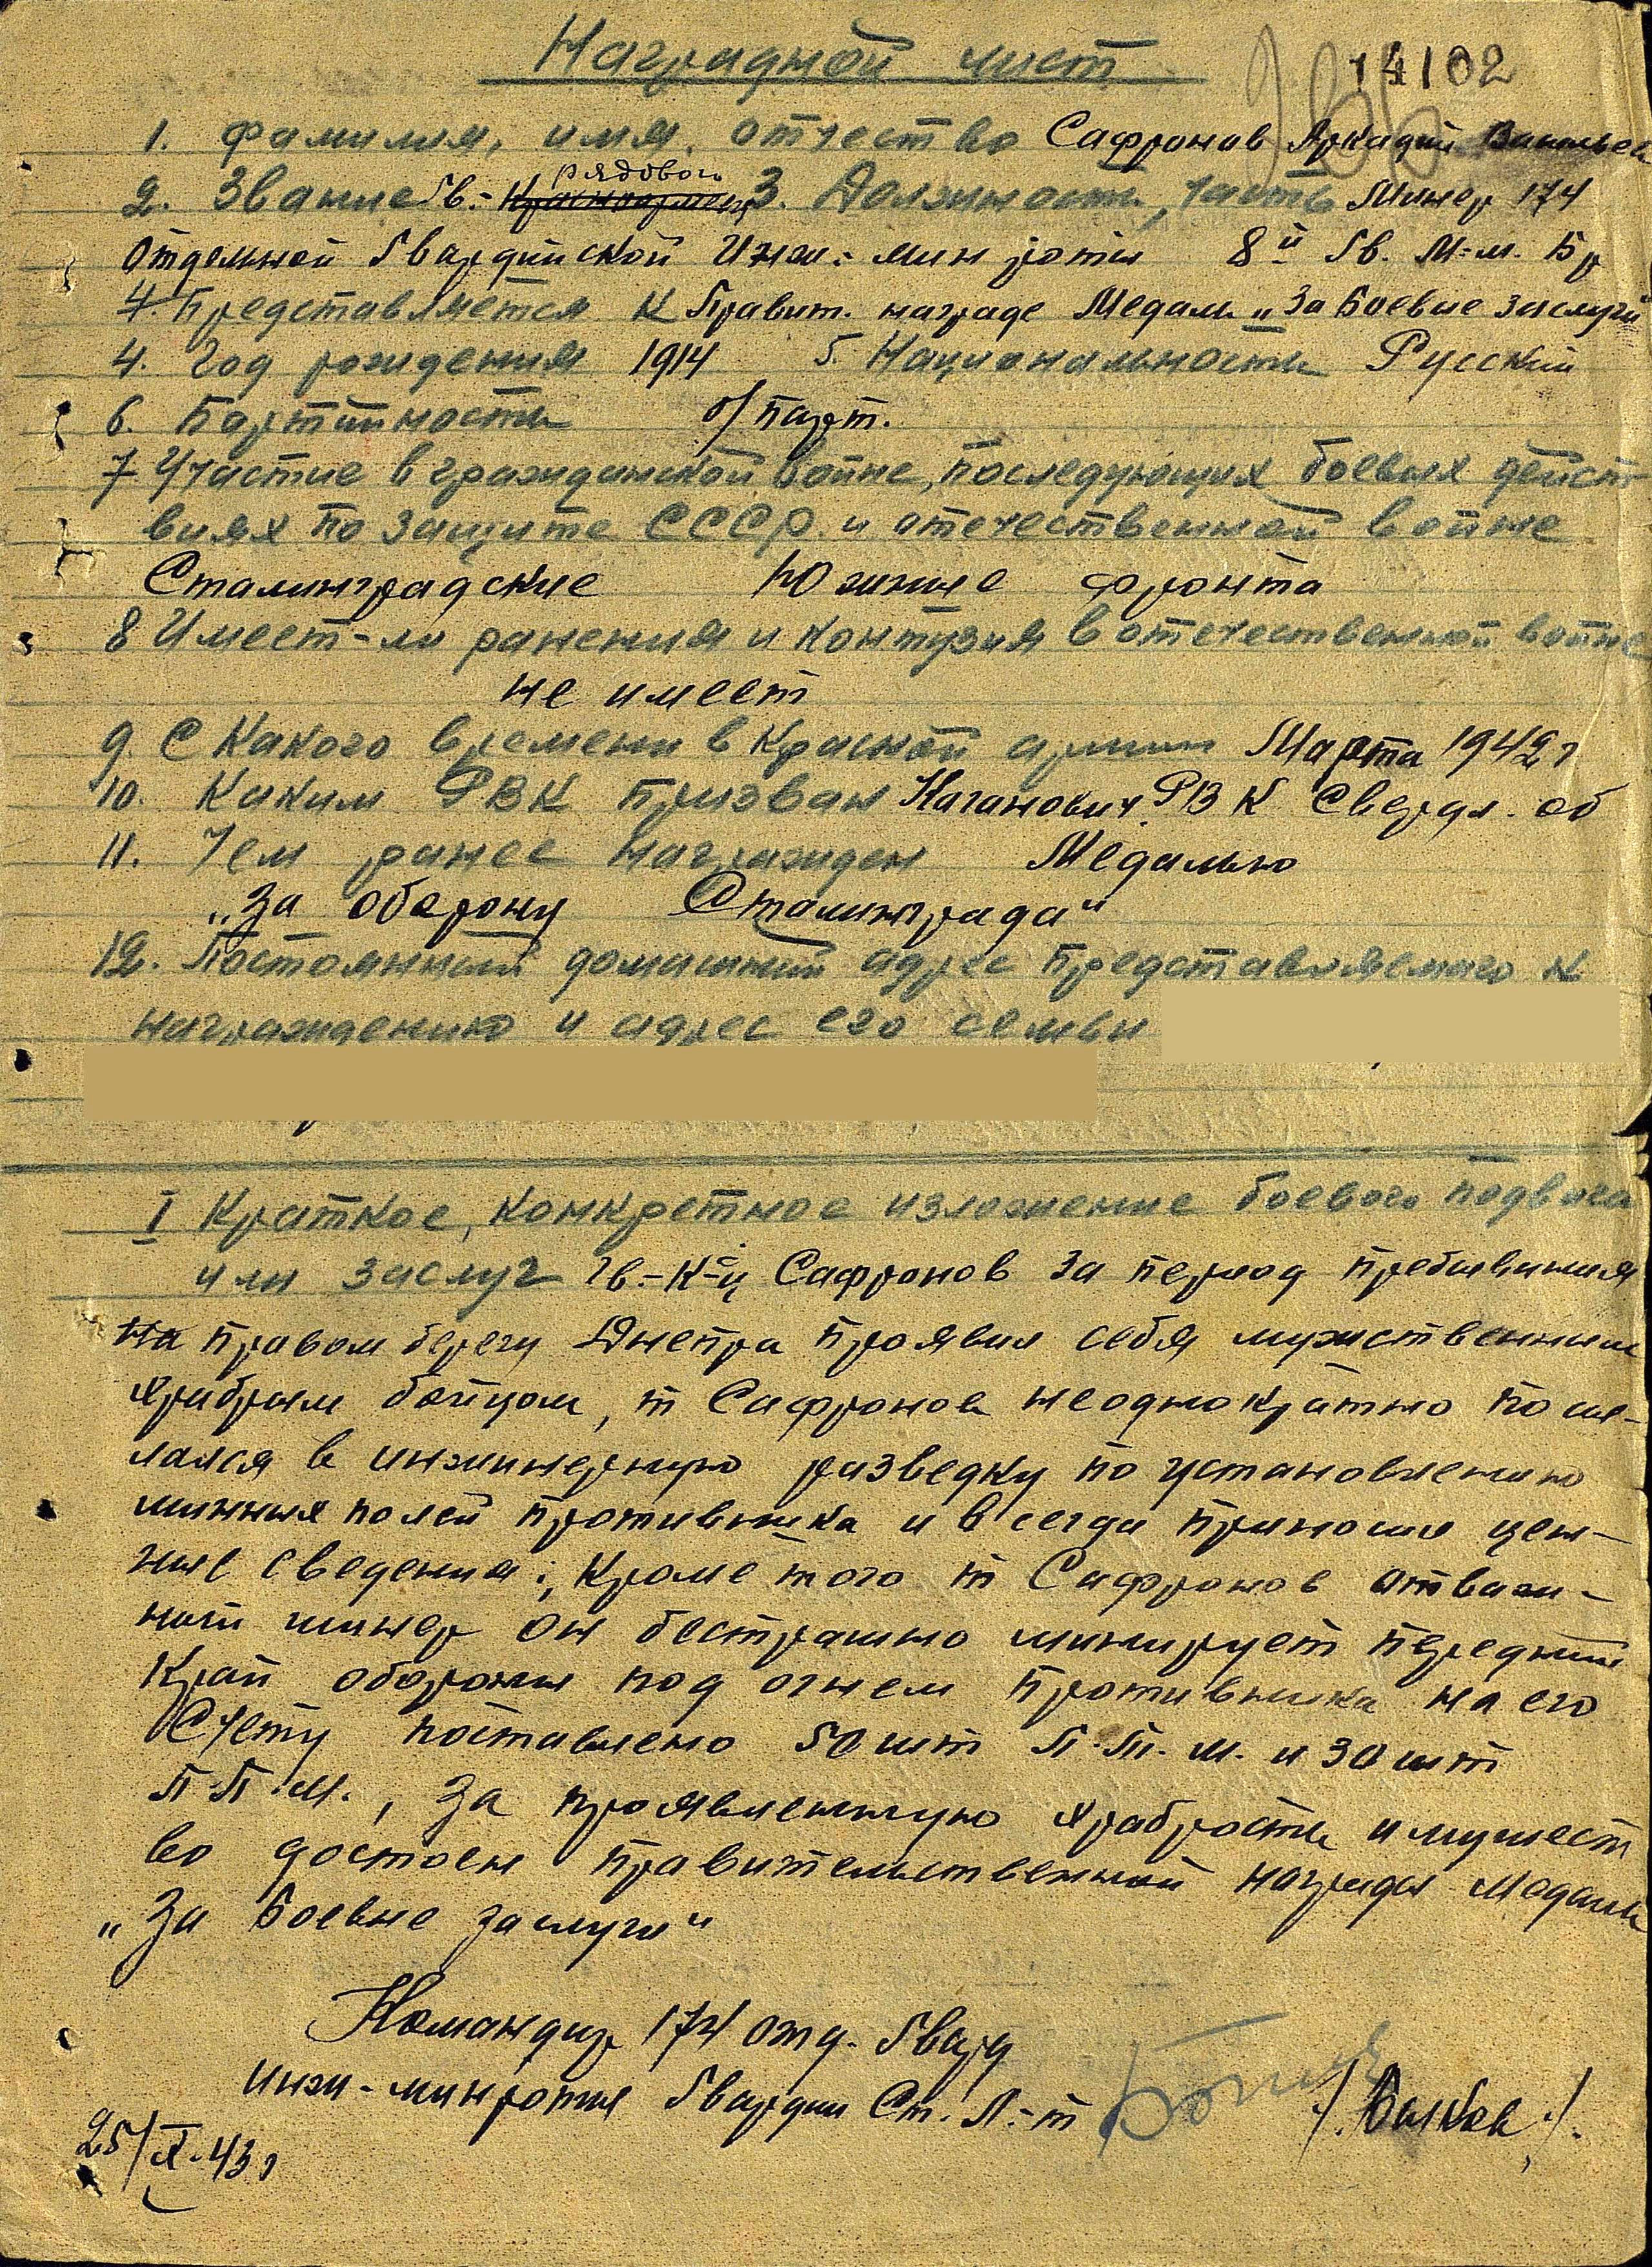 Наградной лист
14102
1. Фамилия, имя, отчество Сафронов Аркадий
рядовой
2. Звание Гв.- Красноармеец 3. Должность, часть Минер 174
отдельной Гвардийской Инж.-мин роты 8й Гв. М-м. Бр
4. Представляется к Правит. награде Медаль „За Боевые заслуги"
4. Год рождения 1914 5. Национальность Русский
6. Партийность б/парт.
7 Участие в гражданской войне, последующих боевых дейст
виях по защите СССР и отечественной войне
Сталинградские Южные фронта
8 Имеет-ли ранения и контузия в отечественной войне
не имеет
9. С какого времени в Красной армии Марта 1942 г
10. Каким РВК призван Каганович. РВК Свердл. об
11. Чем ранее награжден Медалью
„За оборону Сталинграда"
12. Постоянный домашний адрес представляемого к
награждению и адрес его семьи
I Краткое, конкретное изложение боевого подвига
или заслуг Гв.-К-ц Сафронов за период пребывания
на правом берегу Днепра проявил себя мужественным
храбрым бойцом, т Сафронов неоднократно посы-
лался в инжинерную разведку по установлению
минных полей противника и всегда приносил цен-
ные сведения; Кроме того т Сафронов отваж-
ный минер он бестрашно минирует передний
Край обороны под огнем противника на его
Счету поставлено 50 шт П.Т.М. и 30 шт
П.П.М., За проявленную храбрость и мужест
во достоен правительственной награды Медаль
„За Боевые заслуги"
Командир 174 отд. Гвард
инж-минроты Гвардии Ст. Л-т
25/X-43 г